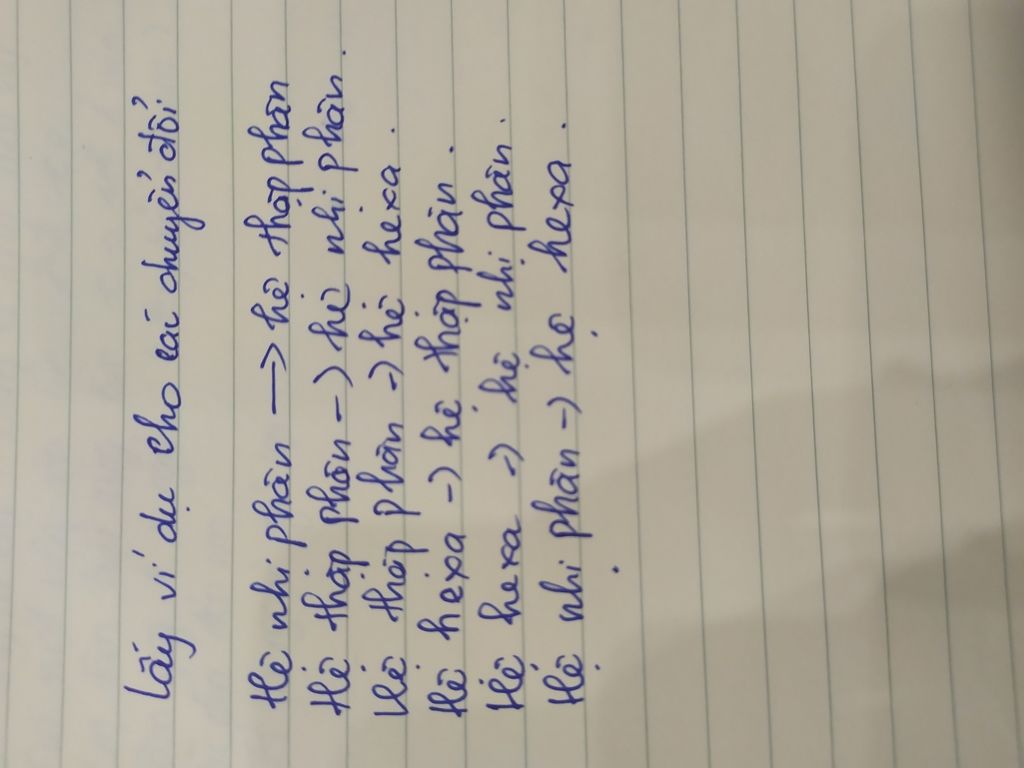 Lấy ví dụ cho cái chuyển đổi
Hệ nhị phân → hệ thập phân
Hệ thập phân → hệ nhị phân.
Hệ thập phân → hệ hexa.
Hệ hexa → hệ thập phân.
Hệ hexa → hệ nhị phân.
Hệ nhị phân → hệ hexa.